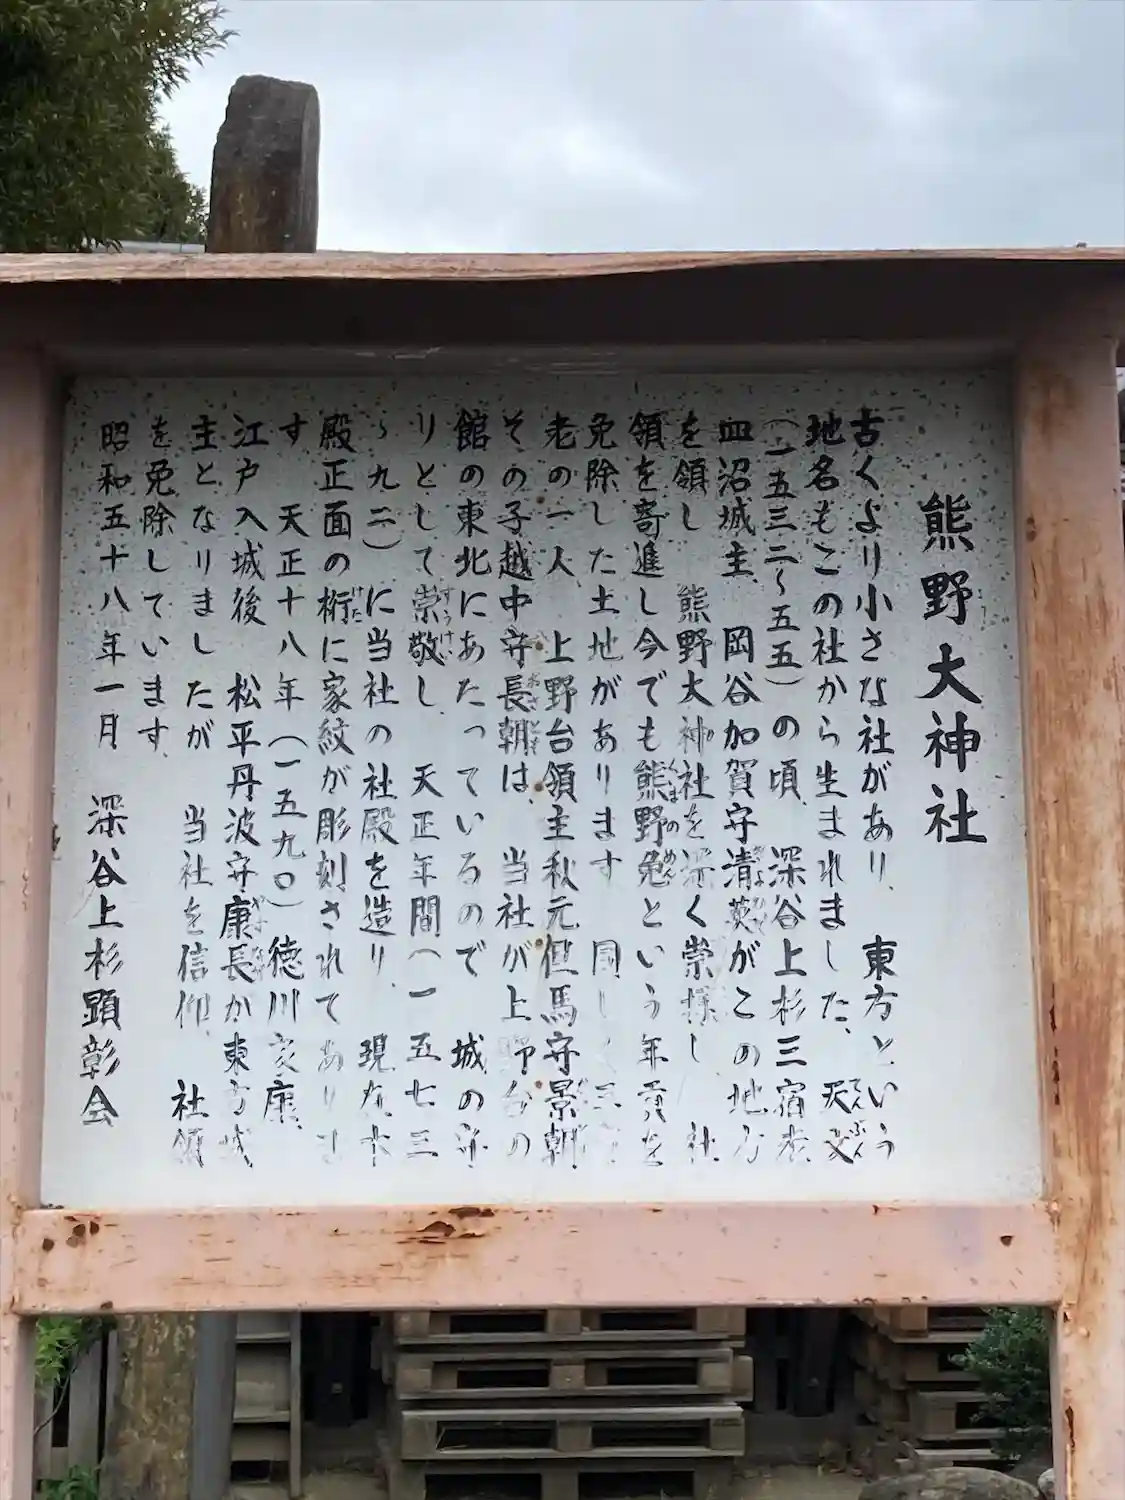 熊野大神社
古くより小さな社があり、東方という
地名もこの社から生まれました、天文
(一五三二〜五五)の頃、深谷上杉三宿老
皿沼城主 岡谷加賀守清英がこの地方
を領し 熊野大神社を深く崇拝し 社
領を寄進し今でも熊野免という年貢を
免除した土地があります 同じく三
老の一人 上野台領主秋元但馬守景朝
その子越中守長朝は、当社が上野台の
館の東北にあたっているので 城の守
りとして崇敬し、天正年間(一五七三
〜九二)に当社の社殿を造り、現在本
殿正面の桁に家紋が彫刻されてありま
す 天正十八年(一五九〇)徳川家康、
江戸入城後 松平丹波守康長が東方城
主となりましたが 当社を信仰、社領
を免除しています、
昭和五十八年一月 深谷上杉顕彰会